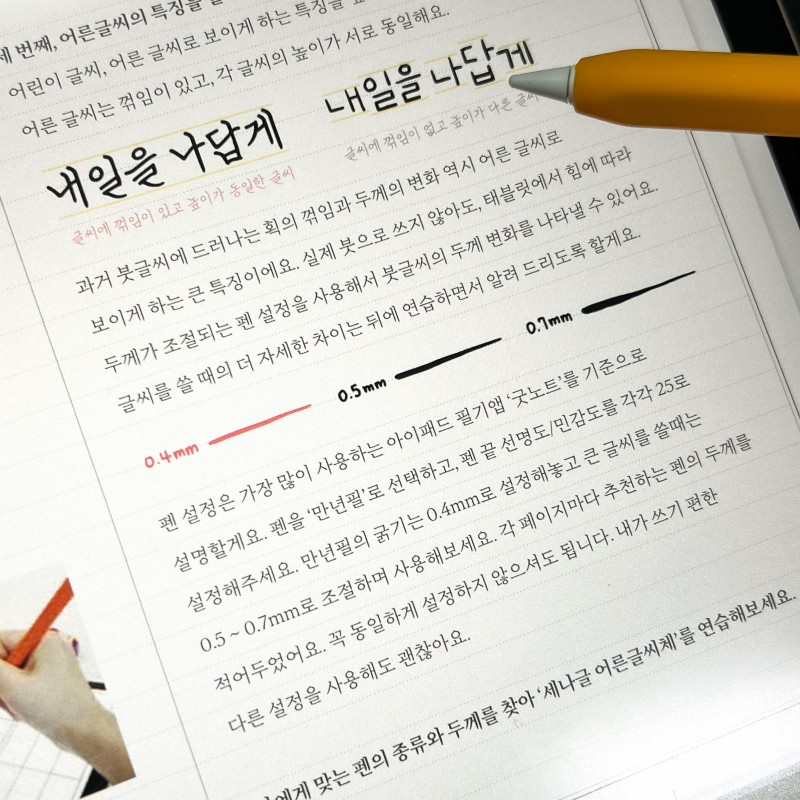 세 번째, 어른글씨의 특징을
어린이 글씨, 어른 글씨로 보이게 하는 특징을
어른 글씨는 꺾임이 있고, 각 글씨의 높이가 서로 동일해요.
내일을 나답게
글씨에 꺾임이 있고 높이가 동일한 글씨
내일을 나답게
글씨에 꺾임이 없고 높이가 다른
과거 붓글씨에 드러나는 획의 꺾임과 두께의 변화 역시 어른 글씨로
보이게 하는 큰 특징이에요. 실제 붓으로 쓰지 않아도, 태블릿에서 힘에 따라
두께가 조절되는 펜 설정을 사용해서 붓글씨의 두께 변화를 나타낼 수 있어요.
글씨를 쓸 때의 더 자세한 차이는 뒤에 연습하면서 알려 드리도록 할게요.
0.4mm
0.5mm
0.7mm
펜 설정은 가장 많이 사용하는 아이패드 필기앱 ‘굿노트’를 기준으로
설명할게요. 펜을 ‘만년필’로 선택하고, 펜 끝 선명도/민감도를 각각 25로
설정해주세요. 만년필의 굵기는 0.4mm로 설정해놓고 큰 글씨를 쓸때는
0.5 ~ 0.7mm로 조절하며 사용해보세요. 각 페이지마다 추천하는 펜의 두께를
적어두었어요. 꼭 동일하게 설정하지 않으셔도 됩니다. 내가 쓰기 편한
다른 설정을 사용해도 괜찮아요.
맞는 펜의 종류와 두께를 찾아 ‘세나글 어른글씨체’를 연습해보세요.